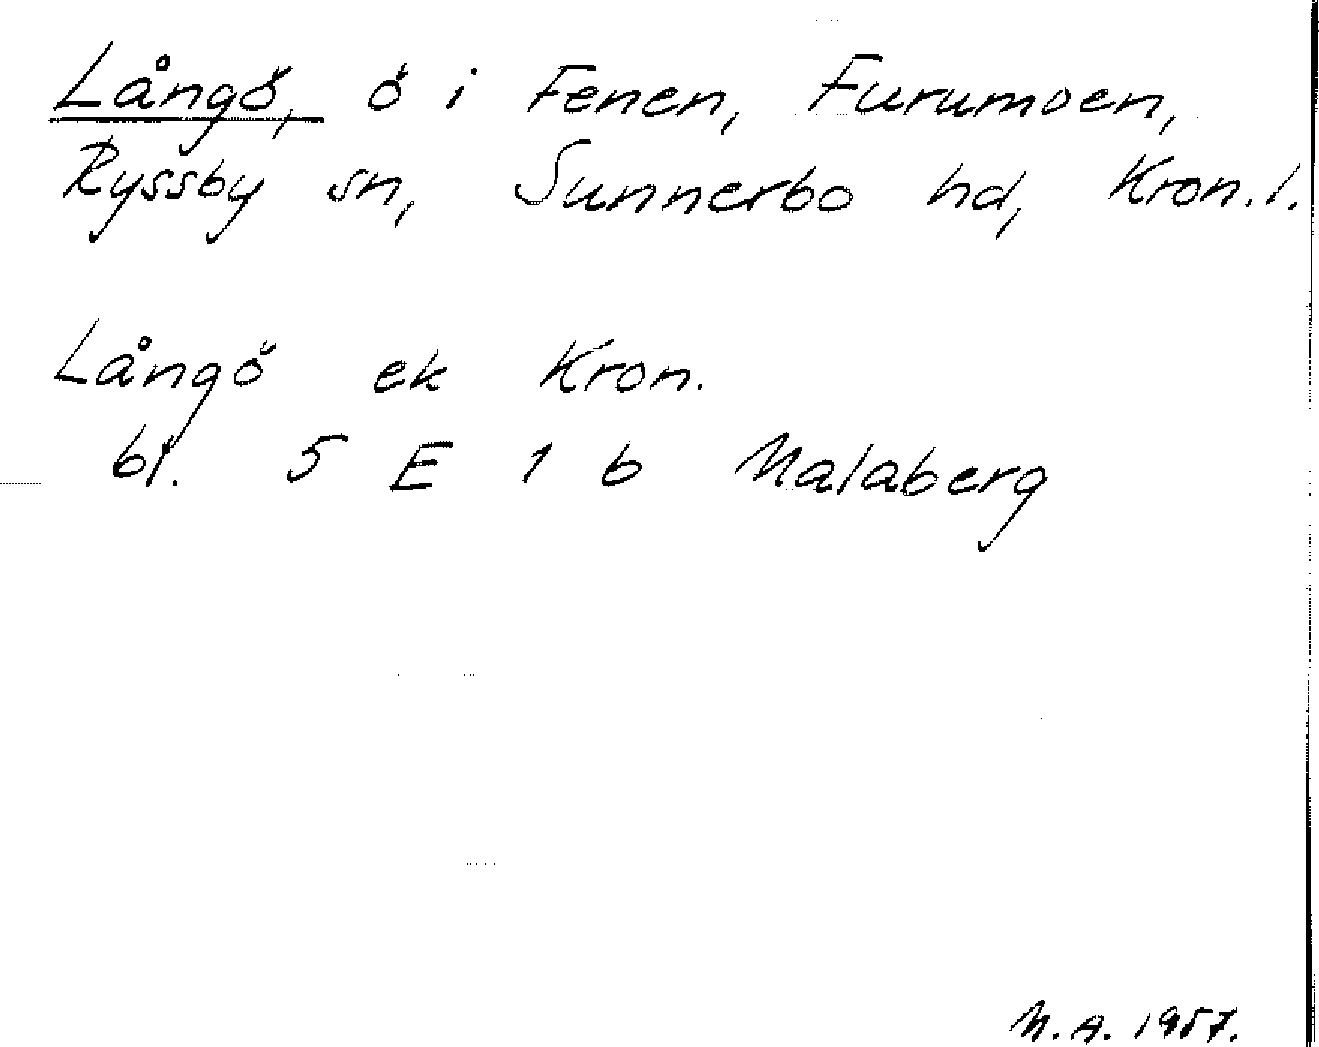 Långö, ö i Fenen, Furumoen,
Ryssby sn, Sunnerbo hd, Kron. l.
Långö ek Kron.
bl. 5 E 1 b Malaberg
M.A. 1957.